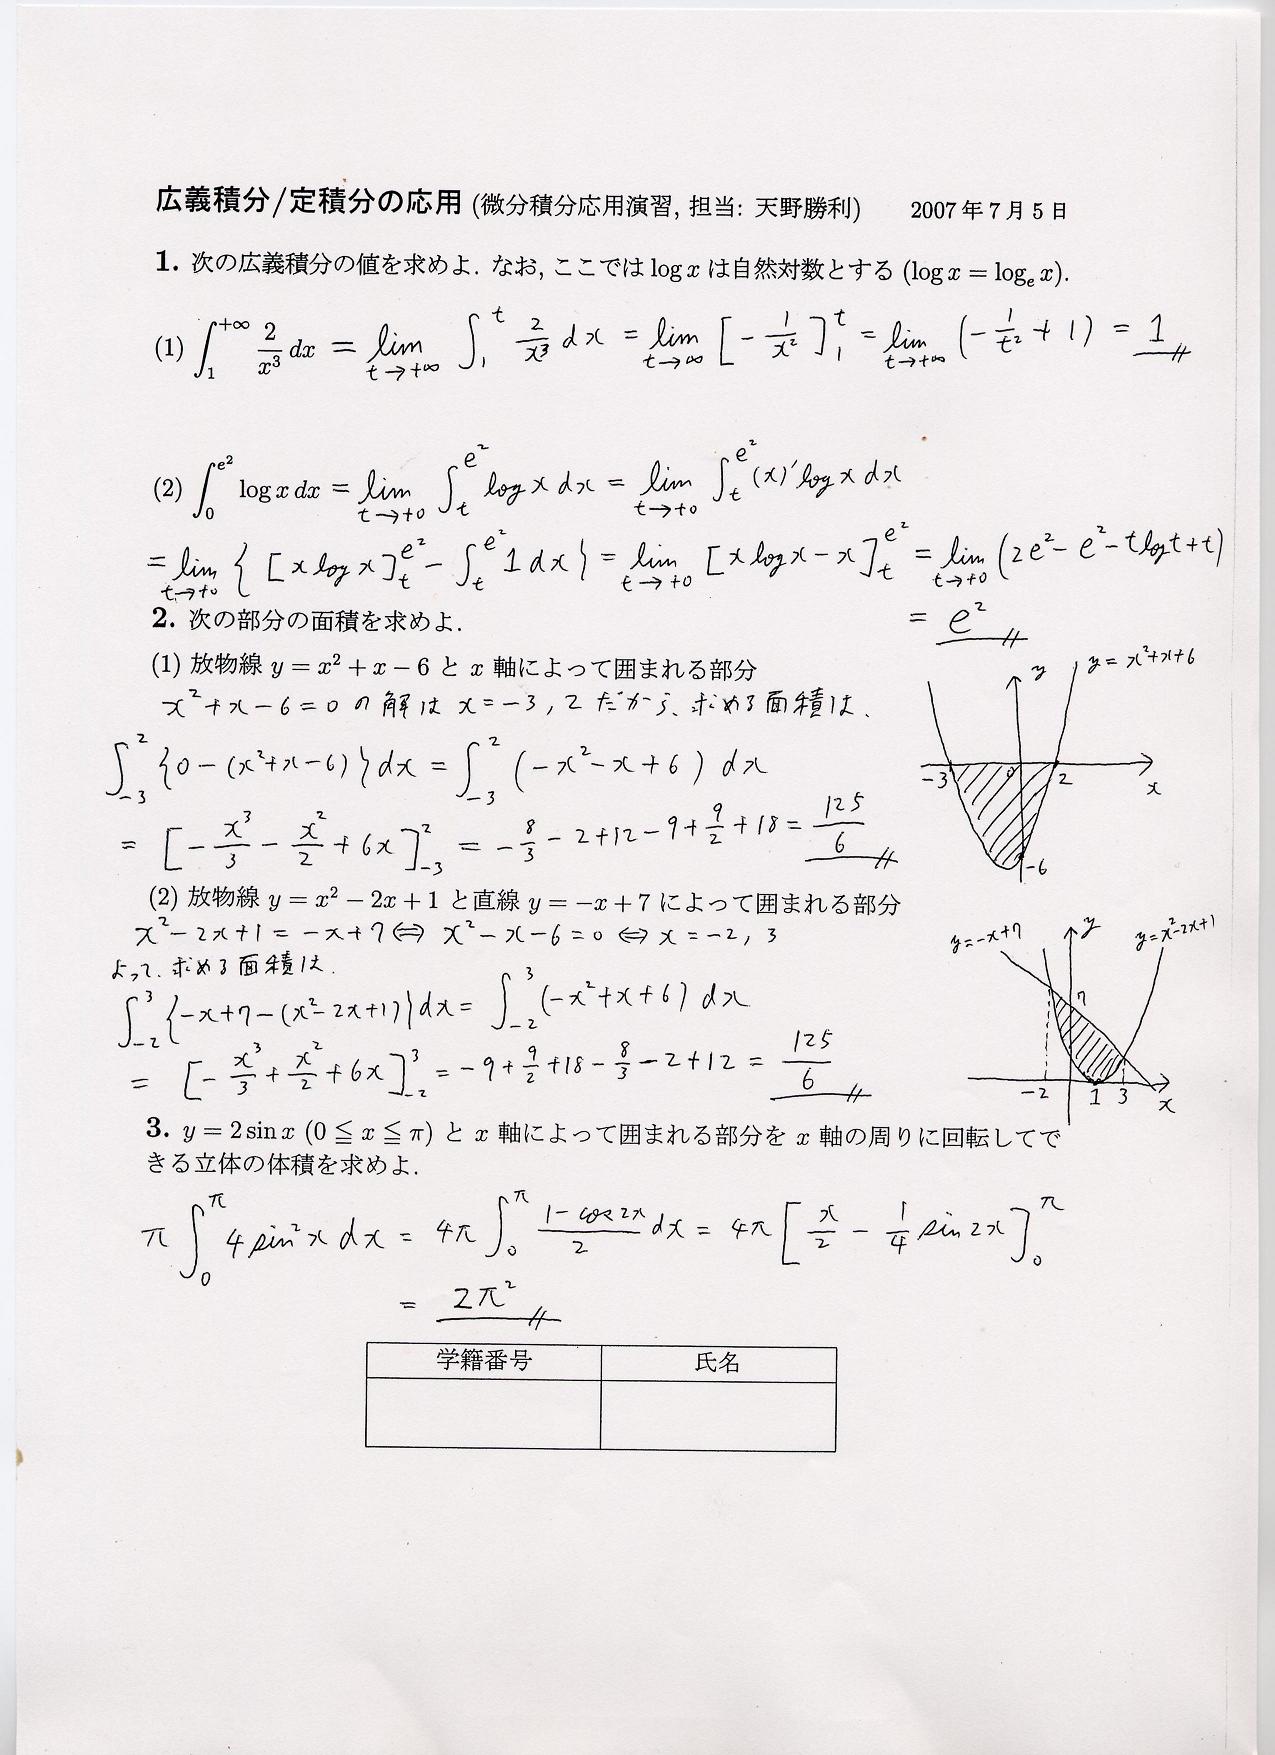 広義積分/定積分の応用 (微分積分応用演習, 担当: 天野勝利) 2007年7月5日
1. 次の広義積分の値を求めよ. なお, ここでは log x は自然対数とする (log x = logₑ x).
(1) ∫₁^{+∞} 2/x³ dx = lim_{t→+∞} ∫₁^t 2/x³ dx = lim_{t→∞} [-1/x²]₁^t = lim_{t→+∞} (-1/t² + 1) = 1
(2) ∫₀^{e²} log x dx = lim_{t→+0} ∫_t^{e²} log x dx = lim_{t→+0} ∫_t^{e²} (x)′ log x dx
= lim_{t→+0} { [x log x]_t^{e²} - ∫_t^{e²} 1 dx } = lim_{t→+0} [x log x - x]_t^{e²} = lim_{t→+0} (2e² - e² - t log t + t)
= e²
2. 次の部分の面積を求めよ.
(1) 放物線 y = x² + x − 6 と x 軸によって囲まれる部分
x² + x − 6 = 0 の解は x = −3, 2 だから、求める面積は、
∫_{-3}^{2} {0 − (x² + x − 6)} dx = ∫_{-3}^{2} (−x² − x + 6) dx
= [−x³/3 − x²/2 + 6x]_{-3}^{2} = −8/3 − 2 + 12 − 9 + 9/2 + 18 = 125/6
y
y = x² + x + 6
−3
0
2
x
−6
(2) 放物線 y = x² − 2x + 1 と直線 y = −x + 7 によって囲まれる部分
x² − 2x + 1 = −x + 7 ⇔ x² − x − 6 = 0 ⇔ x = −2, 3
よって、求める面積は、
∫_{-2}^{3} {−x + 7 − (x² − 2x + 1)} dx = ∫_{-2}^{3} (−x² + x + 6) dx
= [−x³/3 + x²/2 + 6x]_{-2}^{3} = −9 + 9/2 + 18 − 8/3 − 2 + 12 = 125/6
y = −x + 7
y
y = x² − 2x + 1
7
−2
1
3
x
3. y = 2 sin x (0 ≦ x ≦ π) と x 軸によって囲まれる部分を x 軸の周りに回転してで
きる立体の体積を求めよ.
π ∫₀^π 4 sin² x dx = 4π ∫₀^π (1 − cos 2x)/2 dx = 4π [x/2 − 1/4 sin 2x]₀^π
= 2π²
学籍番号 氏名